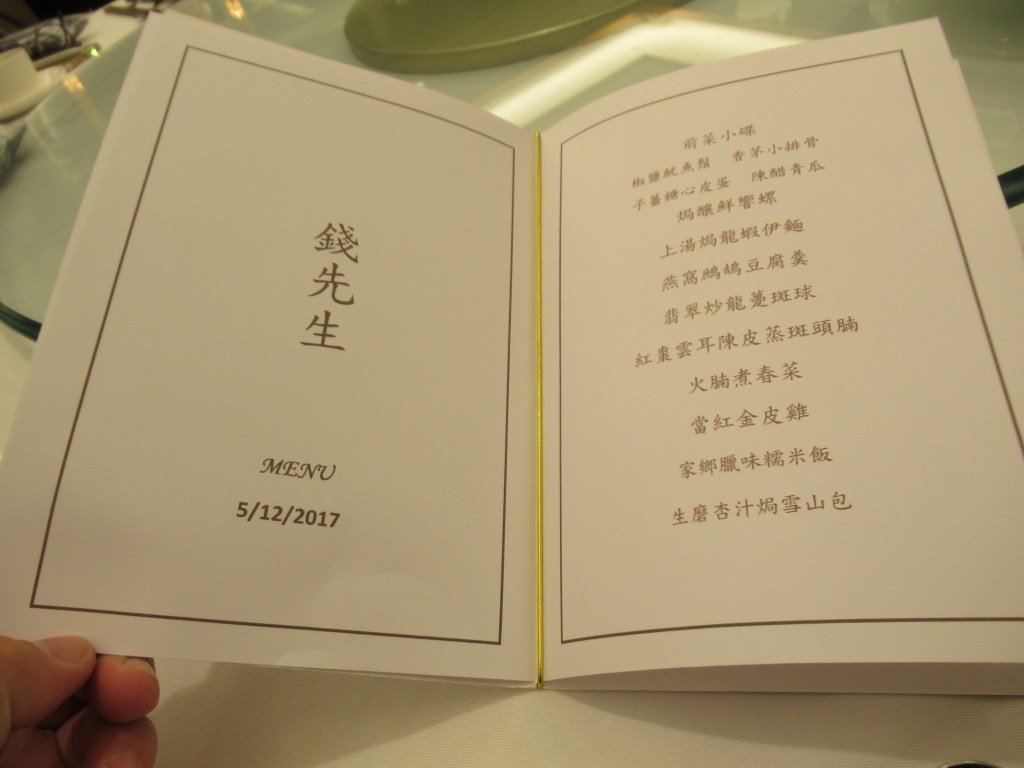 錢先生
MENU
5/12/2017
前菜小碟
椒鹽魷魚鬚 香茅小排骨
子薑糖心皮蛋 陳醋青瓜
焗釀鮮響螺
上湯焗龍蝦伊麵
燕窩鷓鴣豆腐羹
翡翠炒龍躉斑球
紅棗雲耳陳皮蒸斑頭腩
火腩煮春菜
當紅金皮雞
家鄉臘味糯米飯
生磨杏汁焗雪山包